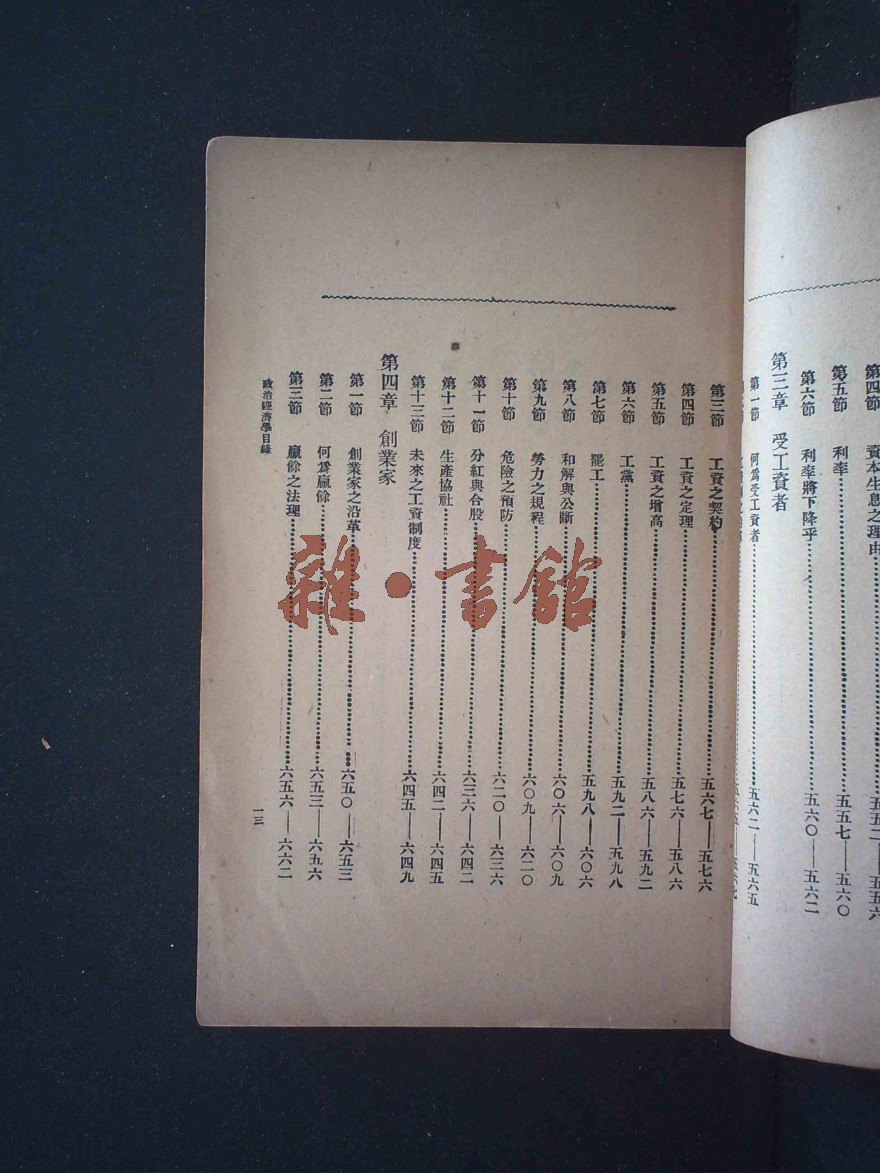 第四節　資本生息之理由……五五二——五五六
第五節　利率……五五七——五六〇
第六節　利率將下降乎……五六〇——五六二
第三章　受工資者
第一節　何爲受工資者……五六二——五六五
第三節　工資之契約……五六七——五七六
第四節　工資之定理……五七六——五八六
第五節　工資之增高……五八六——五九二
第六節　工黨……五九二——五九八
第七節　罷工……五九八——六〇六
第八節　和解與公斷……六〇六——六〇九
第九節　勞力之規程……六〇九——六二〇
第十節　危險之預防……六二〇——六三六
第十一節　分紅與合股……六三六——六四二
第十二節　生產協社……六四二——六四五
第十三節　未來之工資制度……六四五——六四九
第四章　創業家
第一節　創業家之沿革……六五〇——六五三
第二節　何爲贏餘……六五三——六五六
第三節　贏餘之法理……六五六——六六二
政治經濟學目錄
一三
雜·書館